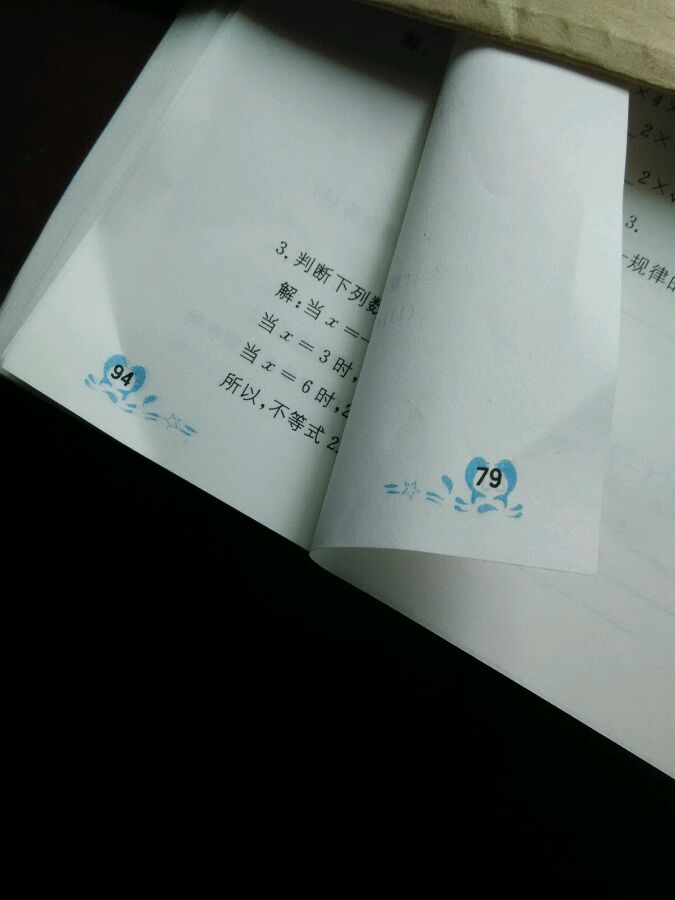 解:
3. 判断下列数
解:当 x =-
当 x = 3 时,
当 x = 6 时,2
所以,不等式 2
94
79
2×
2×
3.
规律的